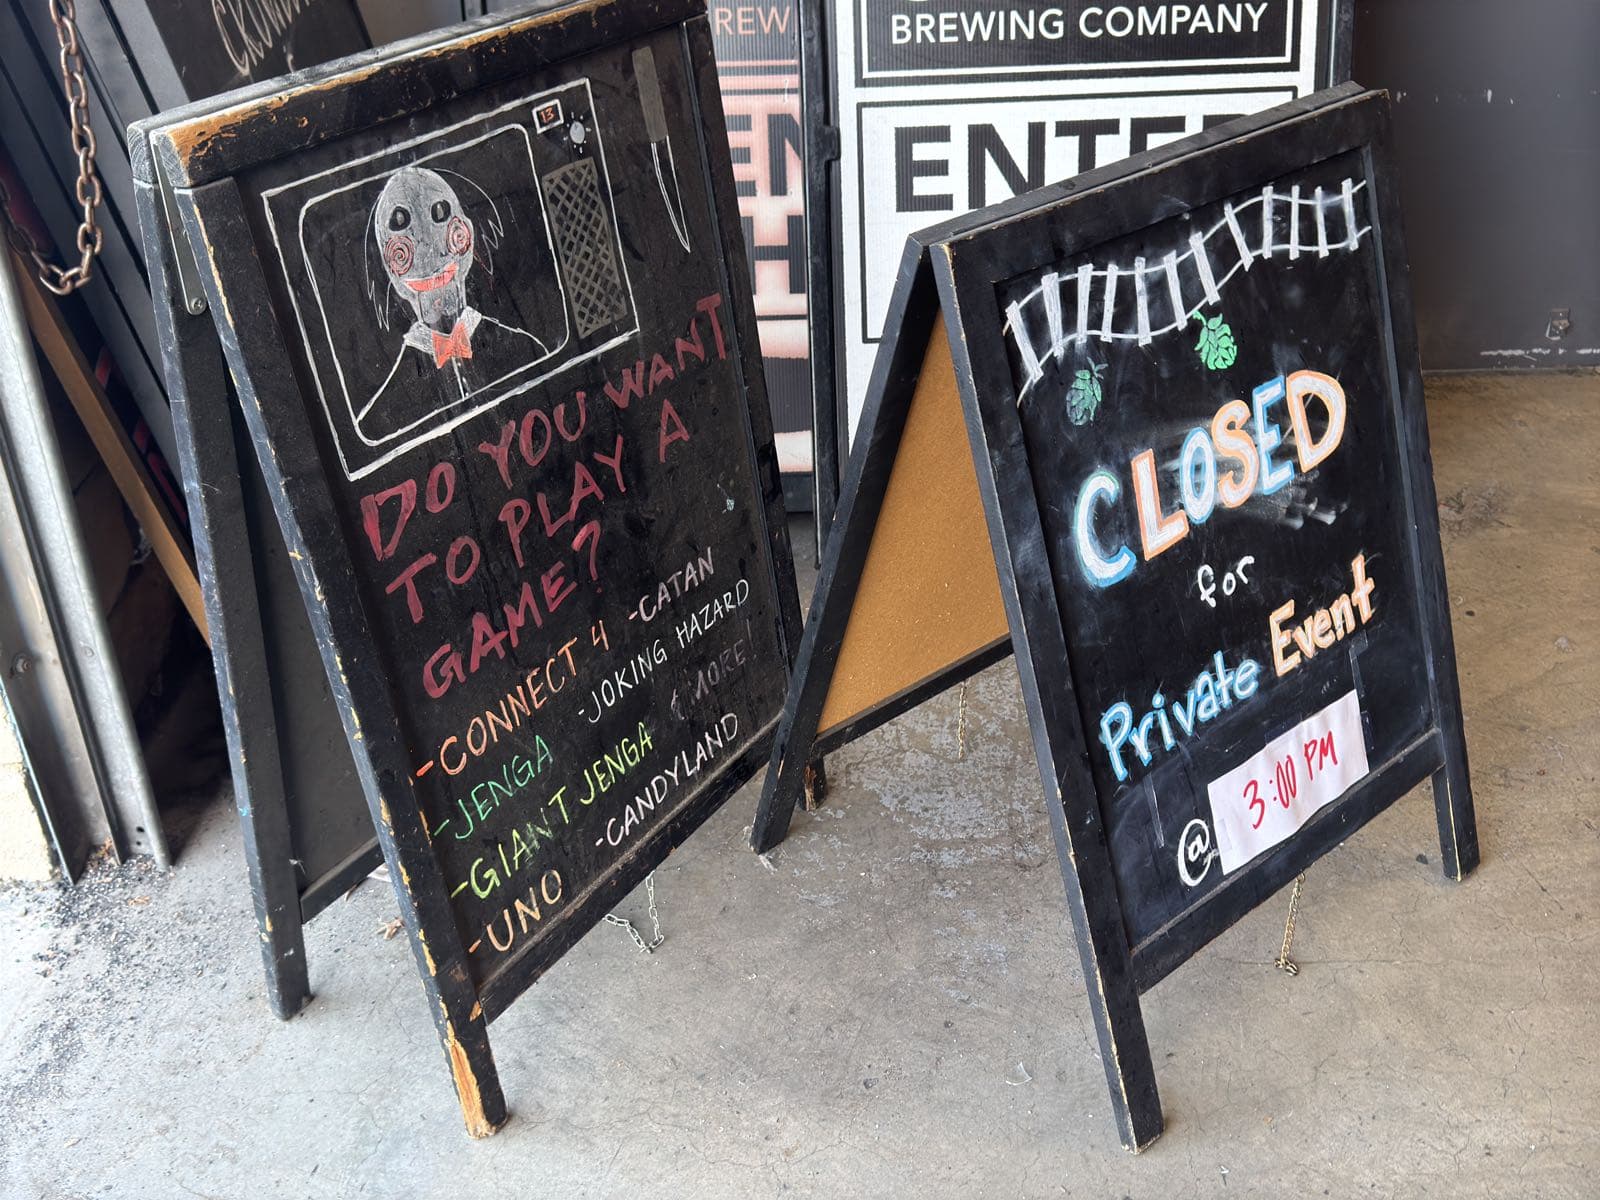 13
DO YOU WANT
TO PLAY A
GAME?
-CONNECT 4
-CATAN
-JENGA
-JOKING HAZARD
-GIANT JENGA
& MORE!
-UNO
-CANDYLAND
BREWING COMPANY
ENTER
CLOSED
for
Private Event
@ 3:00 PM